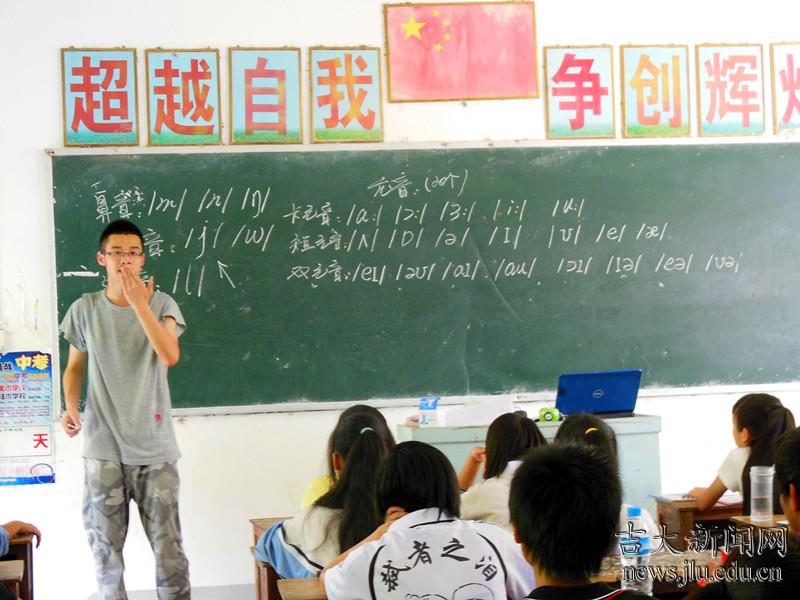 超越自我 争创辉
元音:(20个)
鼻音: /m/ /n/ /ŋ/
长元音: /ɑ:/ /ɔ:/ /ɜ:/ /i:/ /u:/
音: /j/ /w/
短元音: /ʌ/ /ɒ/ /ə/ /ɪ/ /ʊ/ /e/ /æ/
/l/
双元音: /eɪ/ /əʊ/ /aɪ/ /au/ /ɔɪ/ /ɪə/ /eə/ /ʊə/
中考
天
DELL
者之泪
吉大新闻网
news.jlu.edu.cn